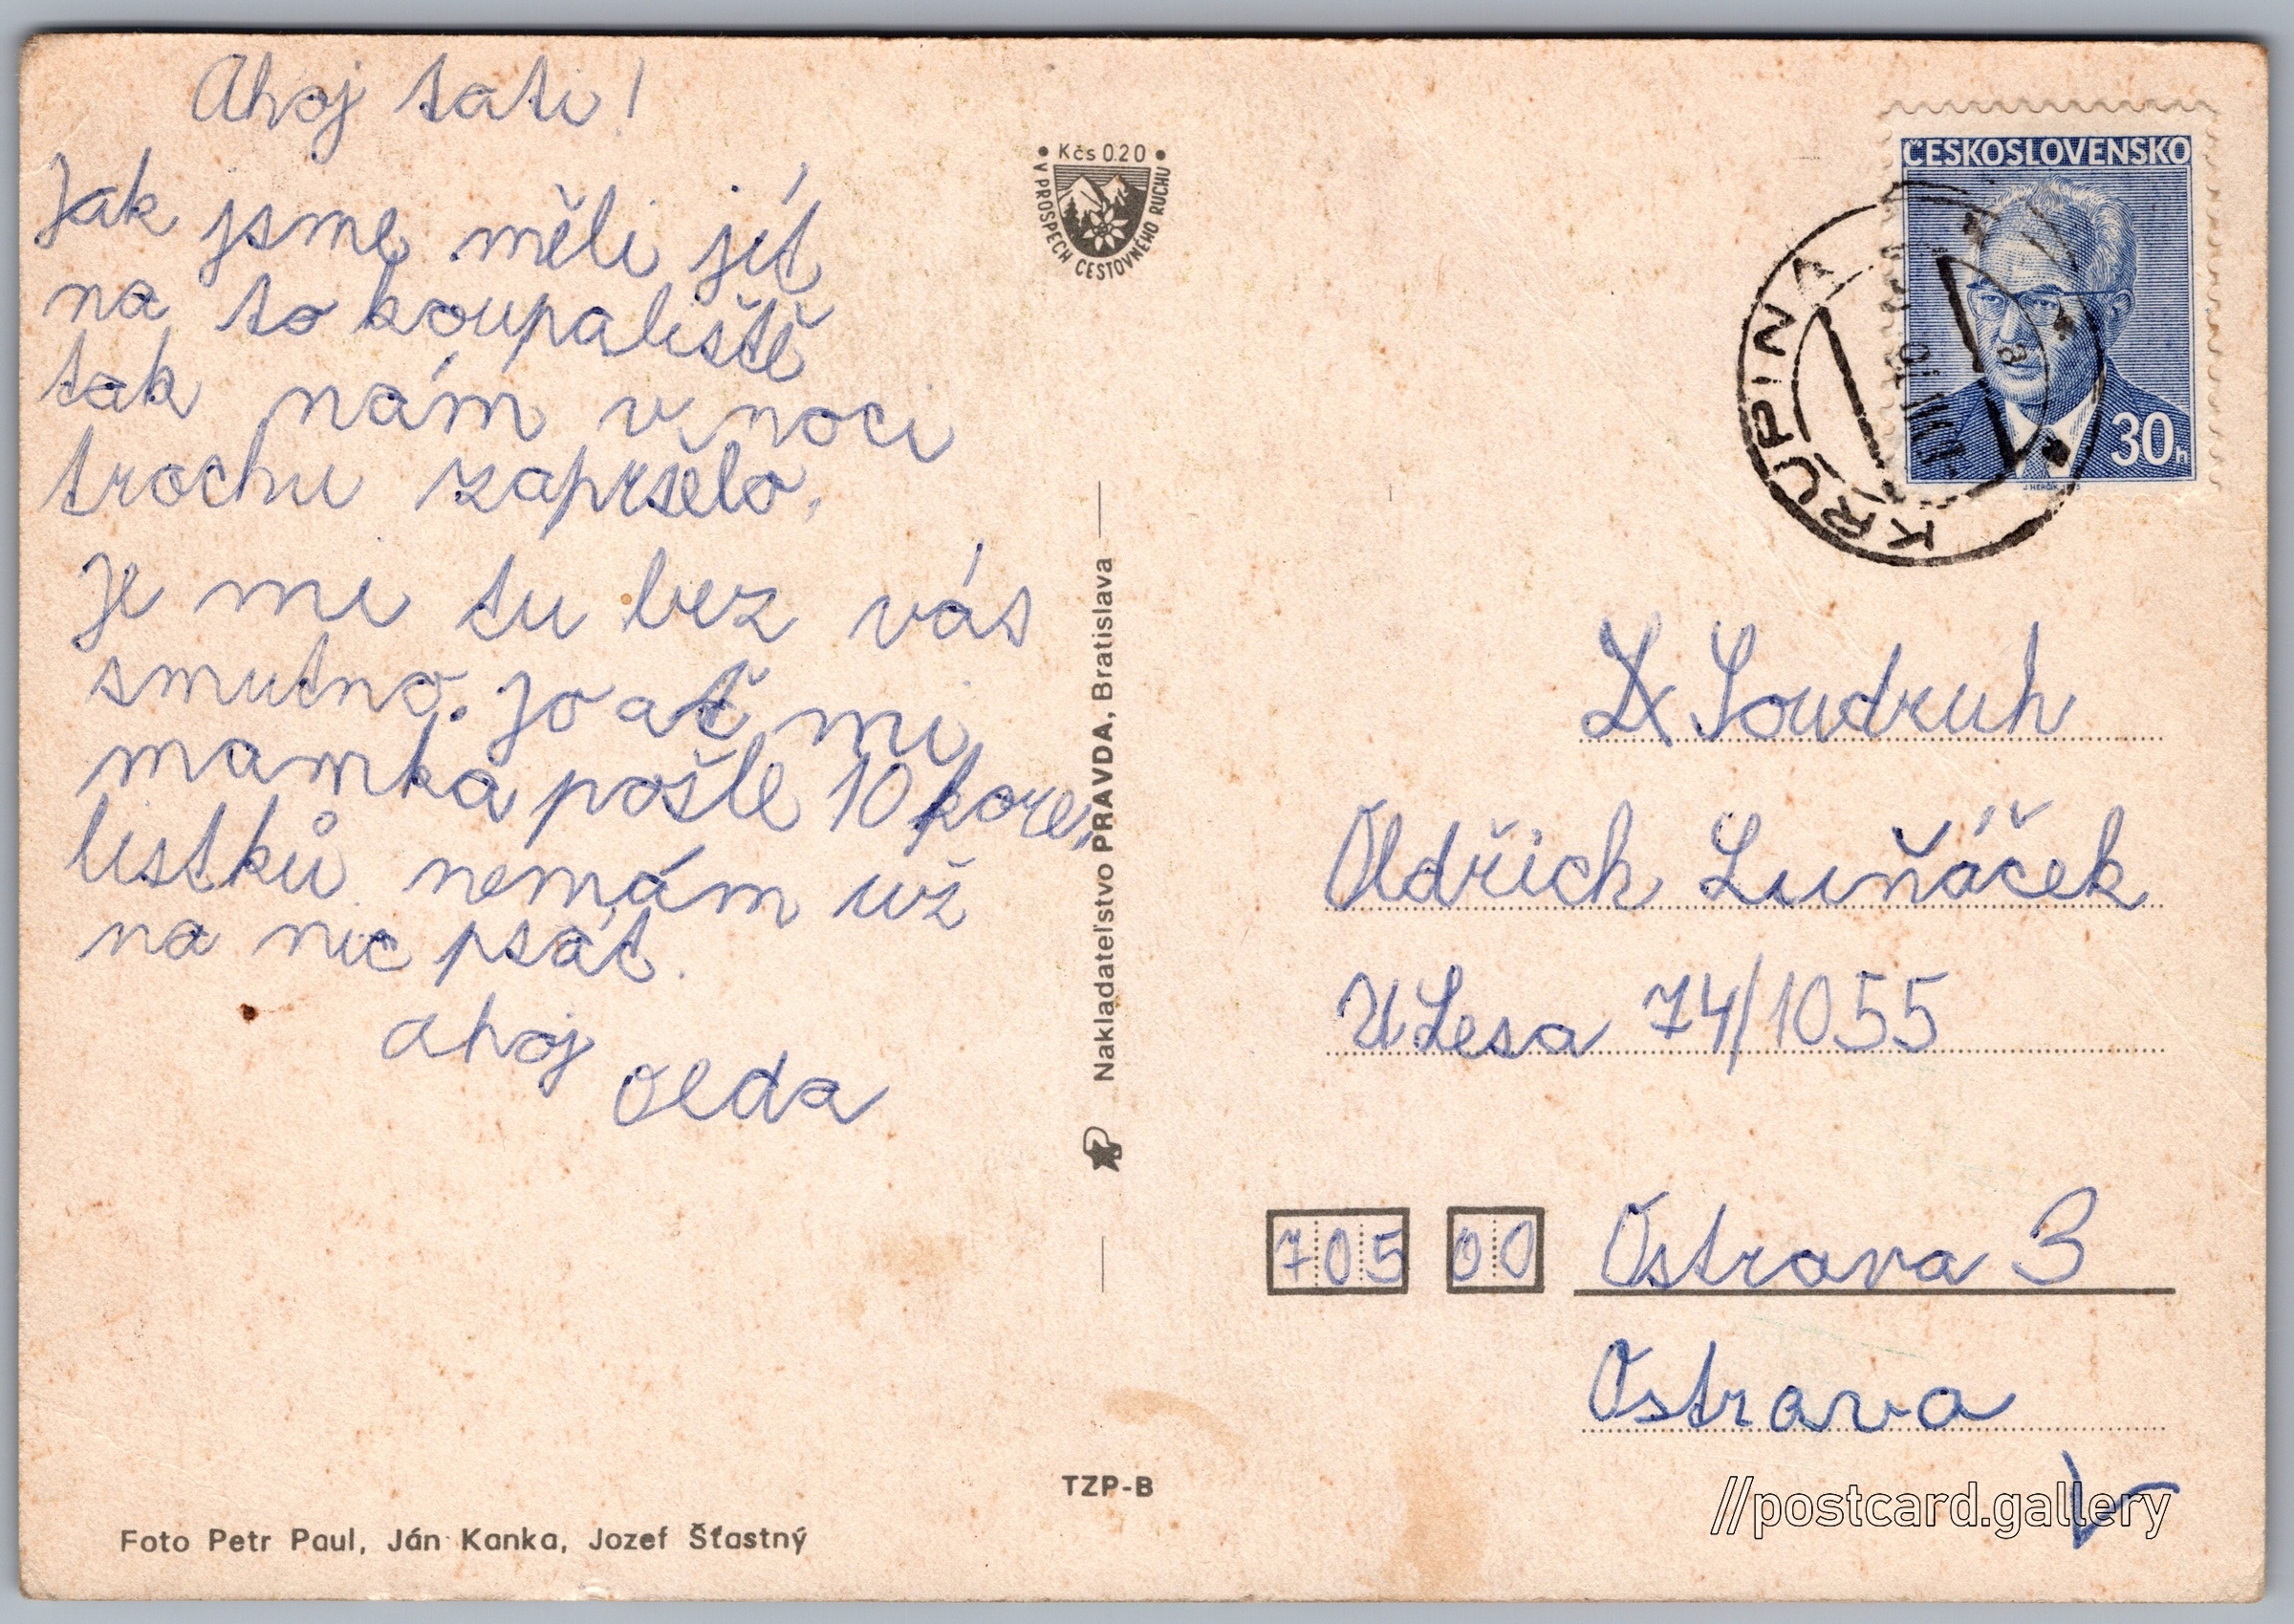 Ahoj tati!
Jak jsme měli jít
na to koupaliště
tak nám v noci
trochu zapršelo.
Je mi tu bez vás
smutno. Jo ať mi
mamka pošle 10 kore.
lístků nemám už
na nic psát.
ahoj
Olda
Foto Petr Paul, Ján Kanka, Jozef Šťastný
• Kčs 0.20 •
V PROSPECH CESTOVNÉHO RUCHU
Nakladateľstvo PRAVDA, Bratislava
TZP-B
ČESKOSLOVENSKO
30h
KRUPINA
Soudruh
Oldřich Luňáček
U Lesa 74/1055
705 00 Ostrava 3
Ostrava
//postcard.gallery